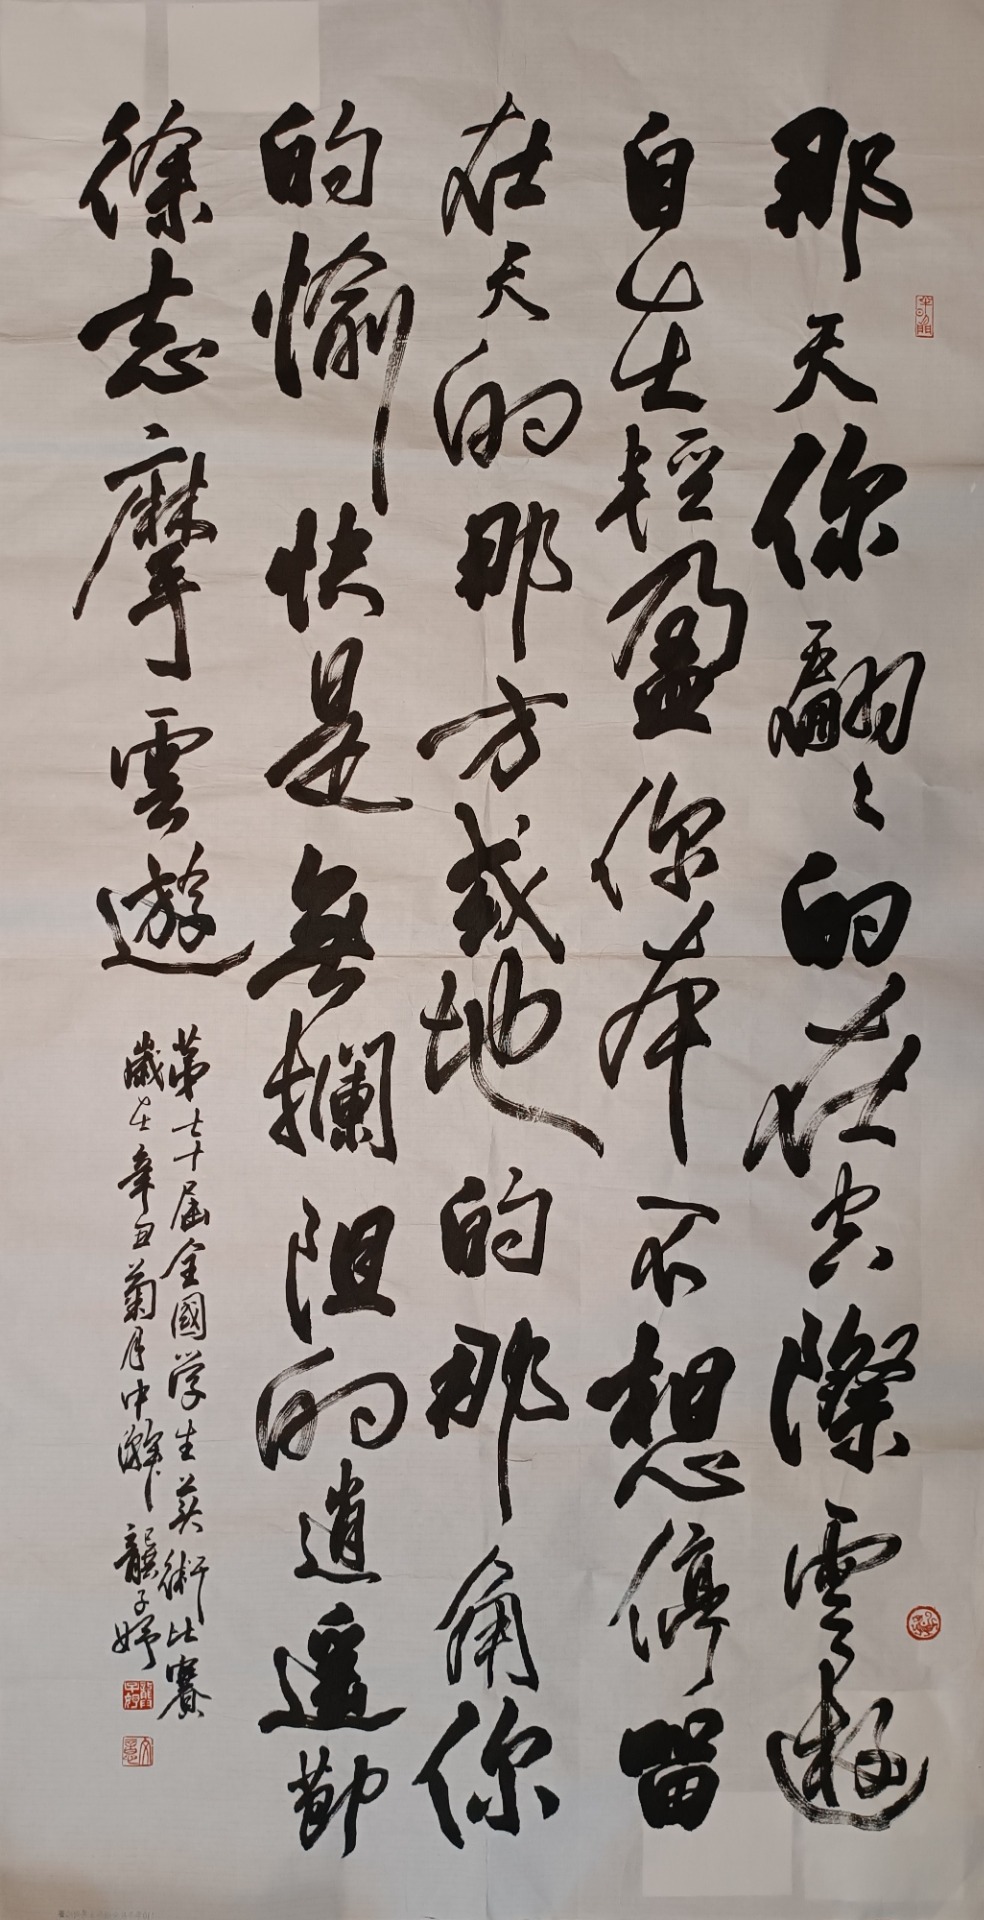 那天你翩々的在空際雲遊
自在輕盈你本不想停留
在天的那方或地的那角你
的愉快是無攔阻的逍遙節
徐志摩雲遊
第七十屆全國学生美術比賽
歲在辛丑菊月中澣龔子妤